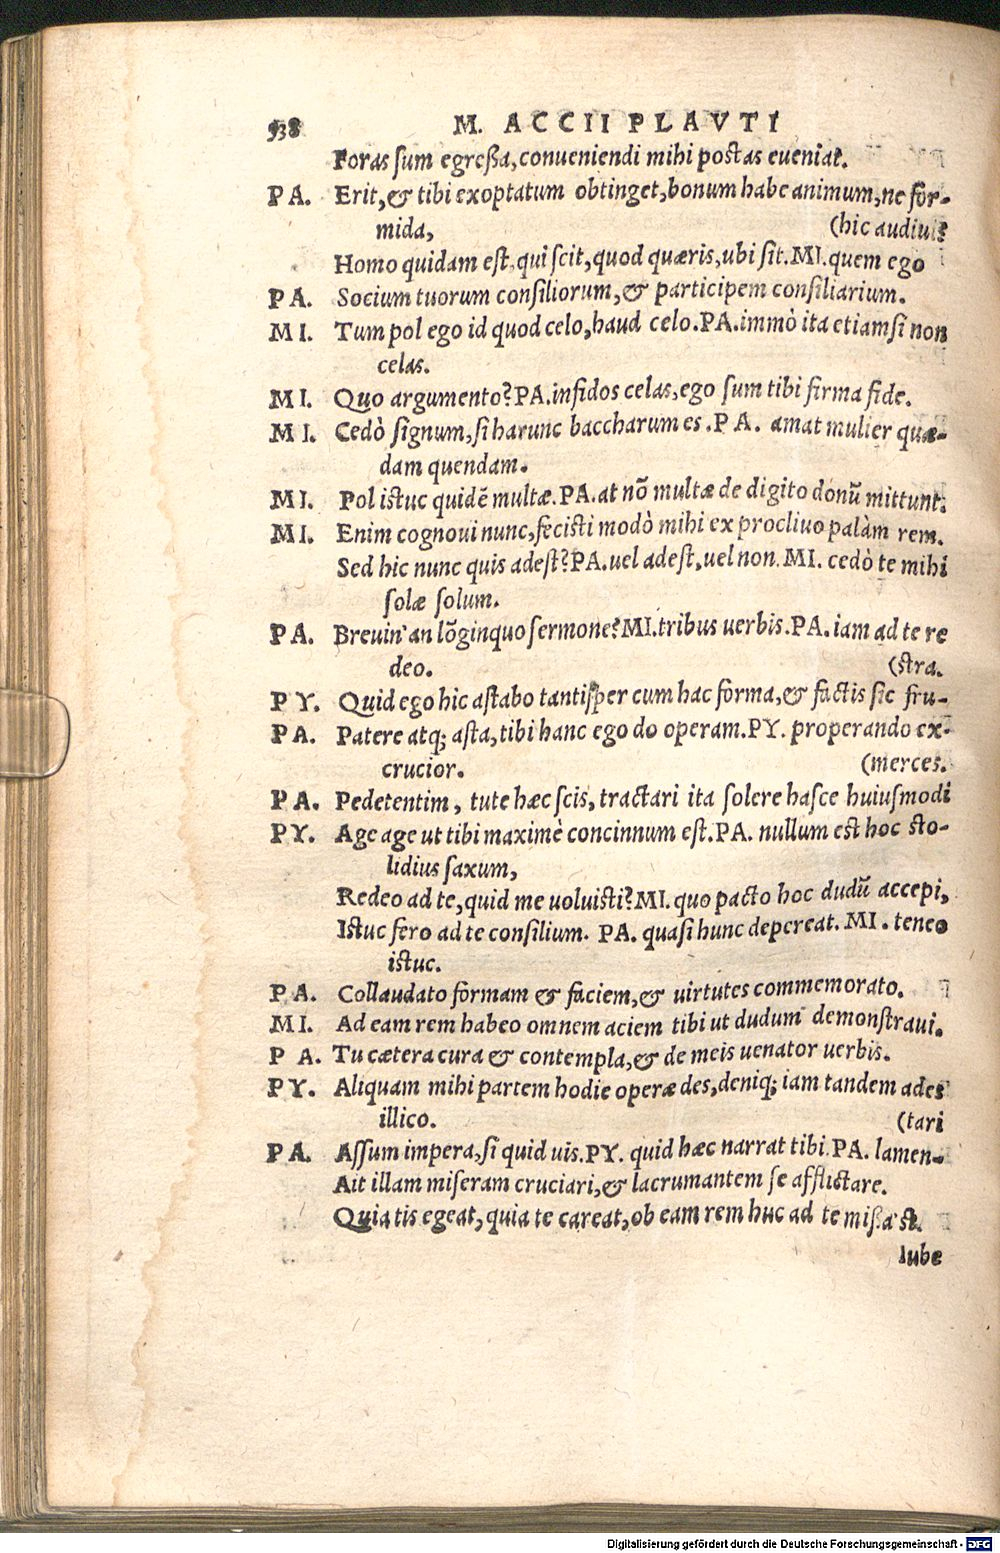 938 M. ACCII PLAVTI
Foras sum egreßa, conueniendi mihi postas eueniat.
PA. Erit, & tibi exoptatum obtinget, bonum habe animum, ne for-
mida, (hic audiui?
Homo quidam est, qui scit, quod quæris, ubi sit. MI. quem ego
PA. Socium tuorum consiliorum, & participem consiliarium.
MI. Tum pol ego id quod celo, haud celo. PA. immò ita etiamsi non
celas.
MI. Quo argumento? PA. infidos celas, ego sum tibi firma fide.
MI. Cedò signum, si harunc baccharum es. PA. amat mulier quæ-
dam quendam.
MI. Pol istuc quidē multæ. PA. at nō multæ de digito donū mittunt.
MI. Enim cognoui nunc, fecisti modò mihi ex procliuo palàm rem.
Sed hic nunc quis adest? PA. uel adest, uel non. MI. cedò te mihi
solæ solum.
PA. Breuin' an lōginquo sermone? MI. tribus uerbis. PA. iam ad te re
deo. (stra.
PY. Quid ego hic astabo tantisper cum hac forma, & factis sic fru-
PA. Patere atq; asta, tibi hanc ego do operam. PY. properando ex-
crucior. (merces.
PA. Pedetentim, tute hæc scis, tractari ita solere hasce huiusmodi
PY. Age age ut tibi maximè concinnum est. PA. nullum est hoc sto-
lidius saxum,
Redeo ad te, quid me uoluisti? MI. quo pacto hoc dudū accepi,
Istuc fero ad te consilium. PA. quasi hunc depereat. MI. teneo
istuc.
PA. Collaudato formam & faciem, & uirtutes commemorato.
MI. Ad eam rem habeo omnem aciem tibi ut dudum demonstraui.
PA. Tu cætera cura & contempla, & de meis uenator uerbis.
PY. Aliquam mihi partem hodie operæ des, deniq; iam tandem ades
illico. (tari
PA. Assum impera, si quid uis. PY. quid hæc narrat tibi. PA. lamen-
Ait illam miseram cruciari, & lacrumantem se afflictare.
Quia tis egeat, quia te careat, ob eam rem huc ad te miß.a'st.
Iube
Digitalisierung gefördert durch die Deutsche Forschungsgemeinschaft - DFG